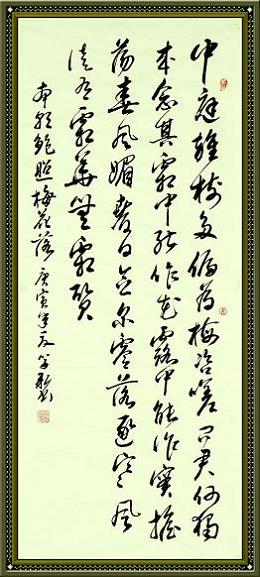 中庭雜樹多偏為梅咨嗟問君何獨
然念其霜中能作花露中能作實搖
蕩春風媚春日念爾零落逐寒風
徒有霜華無霜質
南朝鮑照梅花落庚寅年